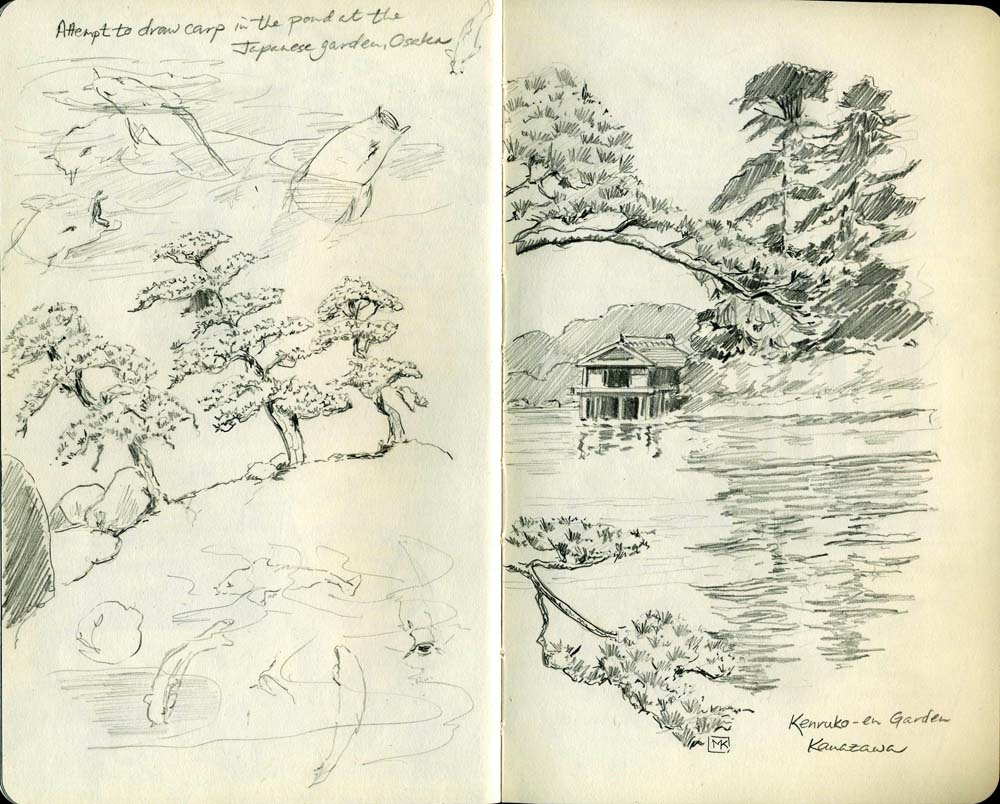 Attempt to draw carp in the pond at the
Japanese garden, Osaka
Kenruko-en Garden
Kanazawa
MK